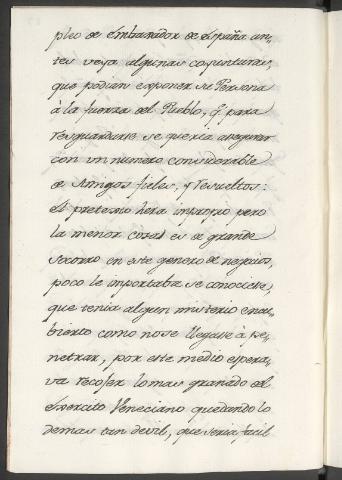 pleo de Embaxador de España an-
tes veya algunas coyunturas,
que podian exponer su Persona
à la fuerza del Pueblo, q.e para
resguardarse se queria asegurar
con un numero considerable
de Amigos fieles, y resueltos:
el pretexto hera improprio pero
la menor cosa es de grande
socorro en este genero de negocios,
poco le importaba se conociese,
que tenia algun misterio encu-
bierto como no se llegasse à pe-
netrar, por este medio espera-
va recojer lo mas granado del
Exercito Veneciano quedando lo
demas tan devil, que seria facil